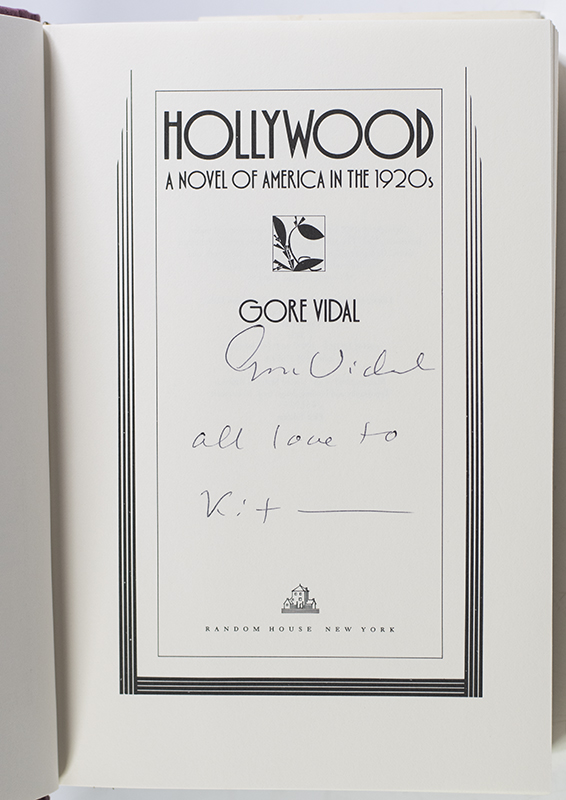 HOLLYWOOD
A NOVEL OF AMERICA IN THE 1920s
GORE VIDAL
Gore Vidal
all love to
Kit
RANDOM HOUSE NEW YORK